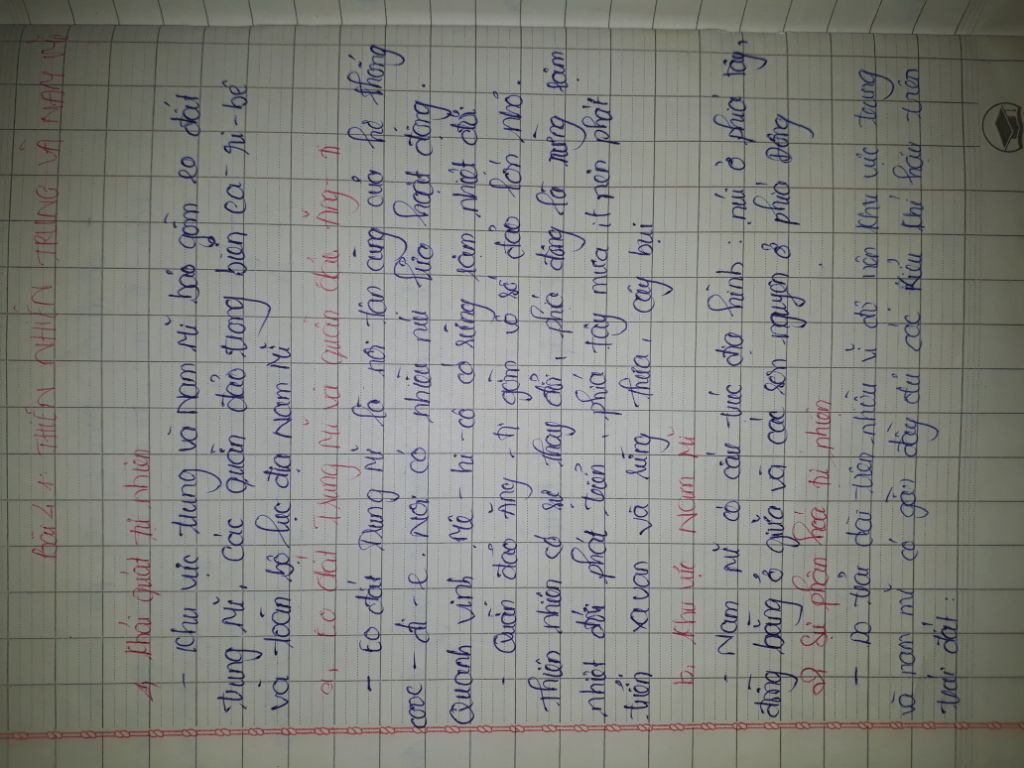 Bài 41: THIÊN NHIÊN TRUNG VÀ NAM MĨ
1, Khái quát tự nhiên
- Khu vực trung và Nam Mĩ bao gồm eo đất
trung Mĩ, các quần đảo trong biển ca-ri-bê
và toàn bộ lục địa Nam Mĩ
a, Eo đất Trung Mĩ và quần đảo Ăng-ti
- Eo đất Trung Mĩ là nơi tận cùng của hệ thống
cooc-đi-e. Nơi có nhiều núi lửa hoạt động.
Quanh vịnh Mê-hi-cô có sông rậm nhiệt đới
- Quần đảo Ăng-ti gồm vô số đảo lớn nhỏ.
Thiên nhiên có sự thay đổi, phía đông là rừng rậm
nhiệt đới phát triển, phía tây mưa ít nên phát
triển xa van và rừng thưa, cây bụi
b. Khu vực Nam Mĩ
- Nam Mĩ có cấu trúc địa hình: núi ở phía tây,
đồng bằng ở giữa và các sơn nguyên ở phía Đông
2, Sự phân hoá tự nhiên
- Do trải dài trên nhiều vĩ độ nên khu vực trung
và nam mĩ có gần đầy đủ các kiểu khí hậu trên
trái đất: